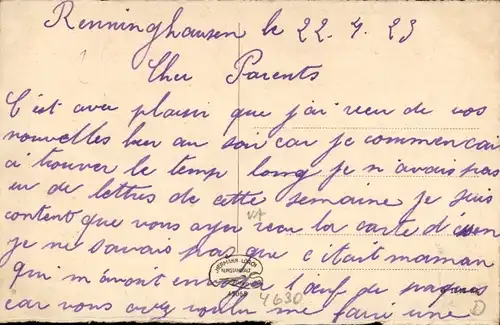 Renninghausen le 22.4.23
Cher Parents
C'est avec plaisir que j'ai recu de vos
nouvelles hier au soir car je commencai
a trouver le temp long je n'avais pas
eu de lettres de cette semaine je suis
content que vous ayer recu la carte d'
je ne savais pas que c'était maman
qui m'avont l'œuf de paques
car vous avez voulu me faire une
HERMANN LORCH
KUNSTANSTALT
4630
D